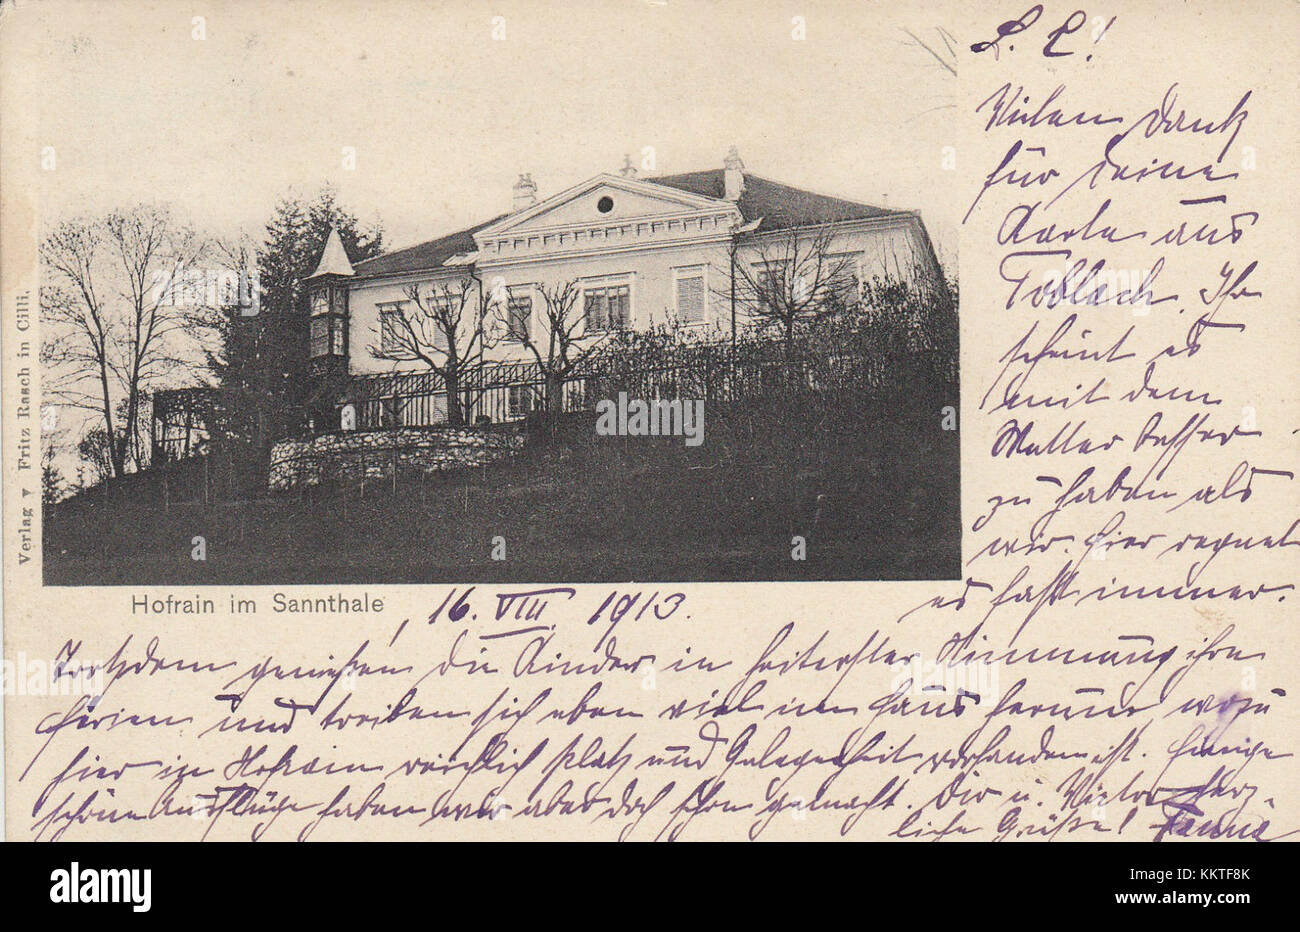 L. L!
Vielen Dank
für Deine
Karte aus
Toblach. Ihr
scheint es
mit dem
Wetter besser
zu haben als
wir. Hier regnet
es fast immer.
Verlag ▾ Fritz Rasch in Cilli.
Hofrain im Sannthale
16. VIII. 1913.
Trotzdem genießen die Kinder in heiterster Stimmung ihre
Ferien und treiben sich eben viel im Haus herum, wozu
hier in Hofrain reichlich Platz und Gelegenheit vorhanden ist. Einige
schöne Ausflüge haben wir aber doch schon gemacht. Dir u. Victor herz-
liche Grüße! Fanne
alamy
a
alamy
Image ID: KKTF8K
www.alamy.com